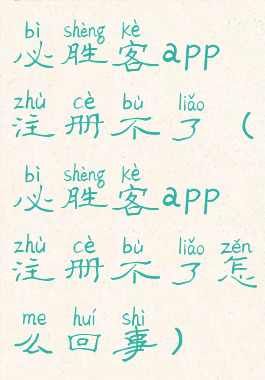 bì shèng kè
必胜客app
zhù cè bù liǎo
注册不了（
bì shèng kè
必胜客app
zhù cè bù liǎo zěn
注册不了怎
me huí shì
么回事）